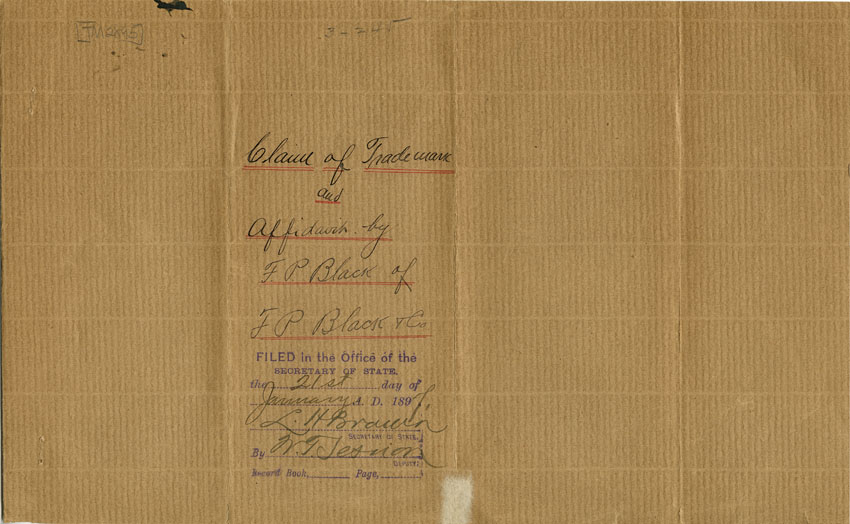 3-245
Claim of Trademark
and
Affidavit by
F P Black of
F P Black & Co
FILED in the Office of the
SECRETARY OF STATE,
the 21st day of
January A. D. 189
L. H Brown
SECRETARY OF STATE.
By W. T.
DEPUTY.
Record Book, Page,